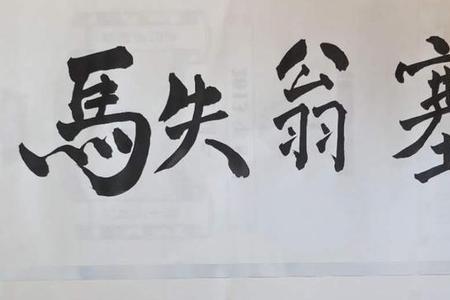 塞翁失馬